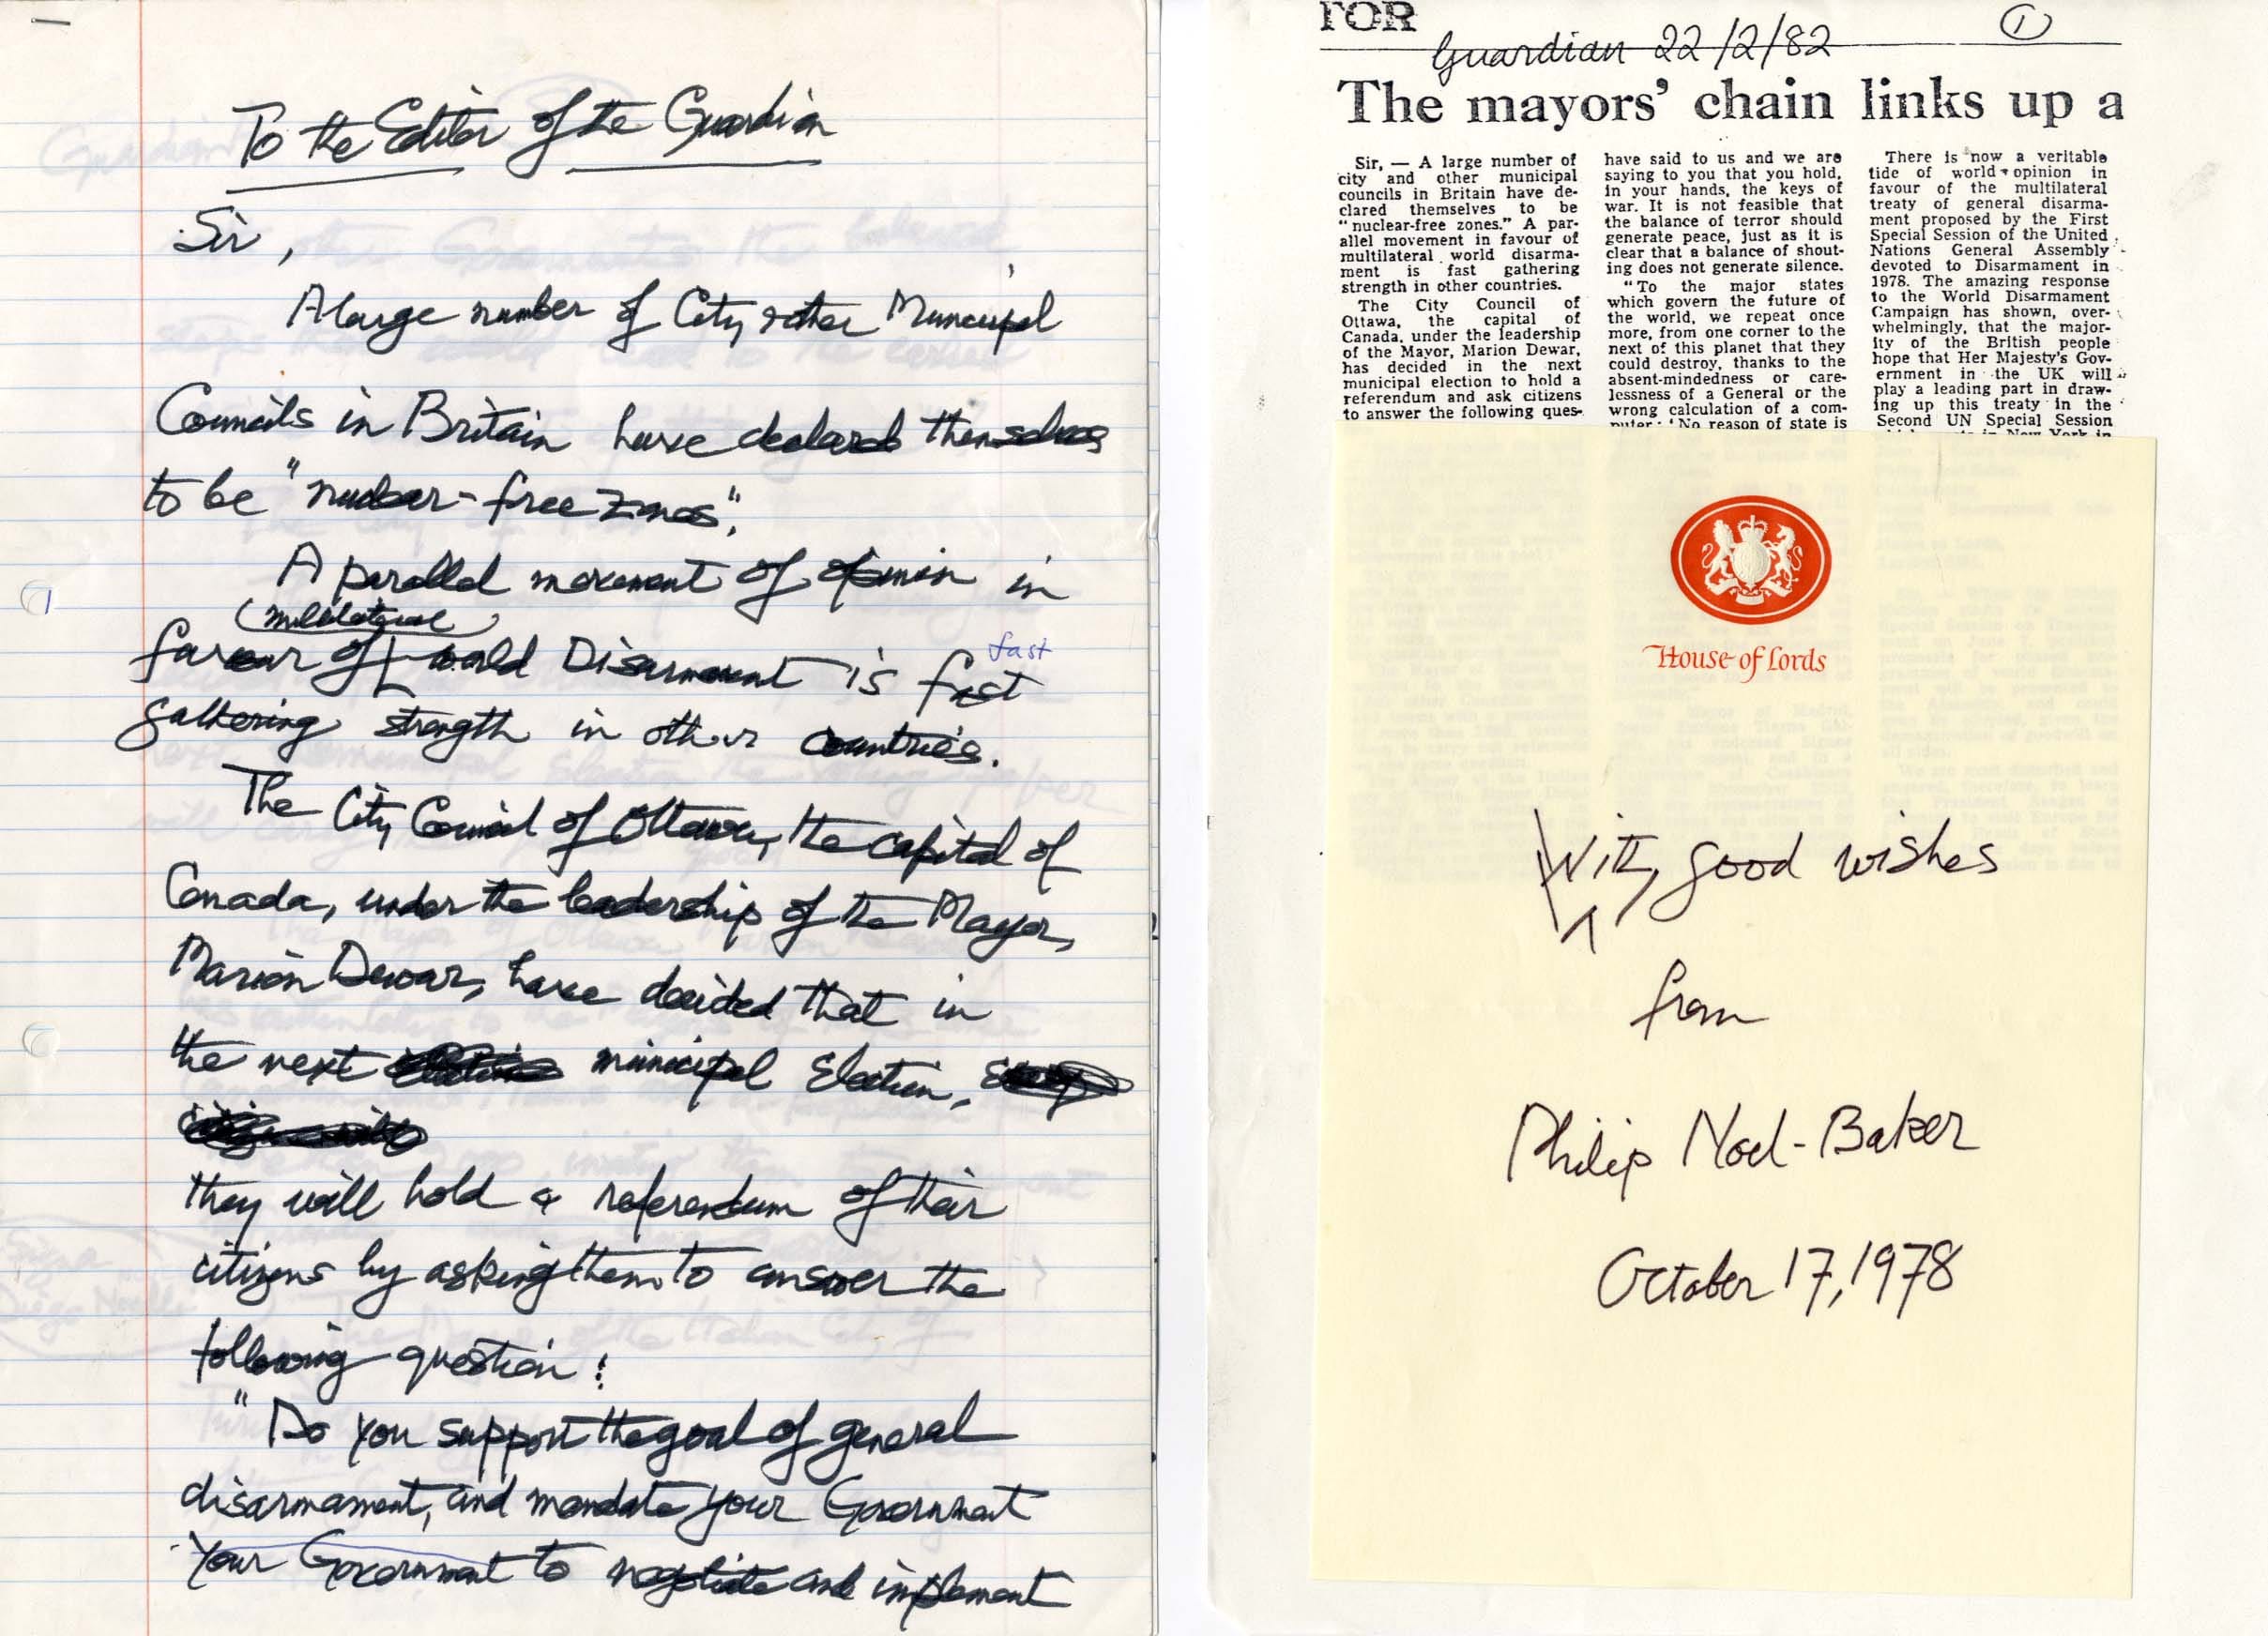 To the Editor of the Guardian
Sir,
A large number of City & other Municipal
Councils in Britain have declared themselves
to be "nuclear-free zones".
A parallel movement of opinion in
(multilateral)
favour of world Disarmament is fast
fast
gathering strength in other countries.
The City Council of Ottawa, the capital of
Canada, under the leadership of the Mayor,
Marion Dewar, have decided that in
the next municipal Election,
they will hold a referendum of their
citizens by asking them to answer the
following question:
"Do you support the goal of general
disarmament, and mandate your Government
your Government to negotiate and implement
TOR
Guardian 22/2/82
1
The mayors' chain links up a
Sir, — A large number of
city and other municipal
councils in Britain have de-
clared themselves to be
"nuclear-free zones." A par-
allel movement in favour of
multilateral world disarma-
ment is fast gathering
strength in other countries.
The City Council of
Ottawa, the capital of
Canada, under the leadership
of the Mayor, Marion Dewar,
has decided in the next
municipal election to hold a
referendum and ask citizens
to answer the following ques-
have said to us and we are
saying to you that you hold,
in your hands, the keys of
war. It is not feasible that
the balance of terror should
generate peace, just as it is
clear that a balance of shout-
ing does not generate silence.
"To the major states
which govern the future of
the world, we repeat once
more, from one corner to the
next of this planet that they
could destroy, thanks to the
absent-mindedness or care-
lessness of a General or the
wrong calculation of a com-
puter: 'No reason of state is
There is now a veritable
tide of world opinion in
favour of the multilateral
treaty of general disarma-
ment proposed by the First
Special Session of the United
Nations General Assembly
devoted to Disarmament in
1978. The amazing response
to the World Disarmament
Campaign has shown, over-
whelmingly, that the major-
ity of the British people
hope that Her Majesty's Gov-
ernment in the UK will
play a leading part in draw-
ing up this treaty in the
Second UN Special Session
in New York in
House of Lords
With good wishes
from
Philip Noel-Baker
October 17, 1978